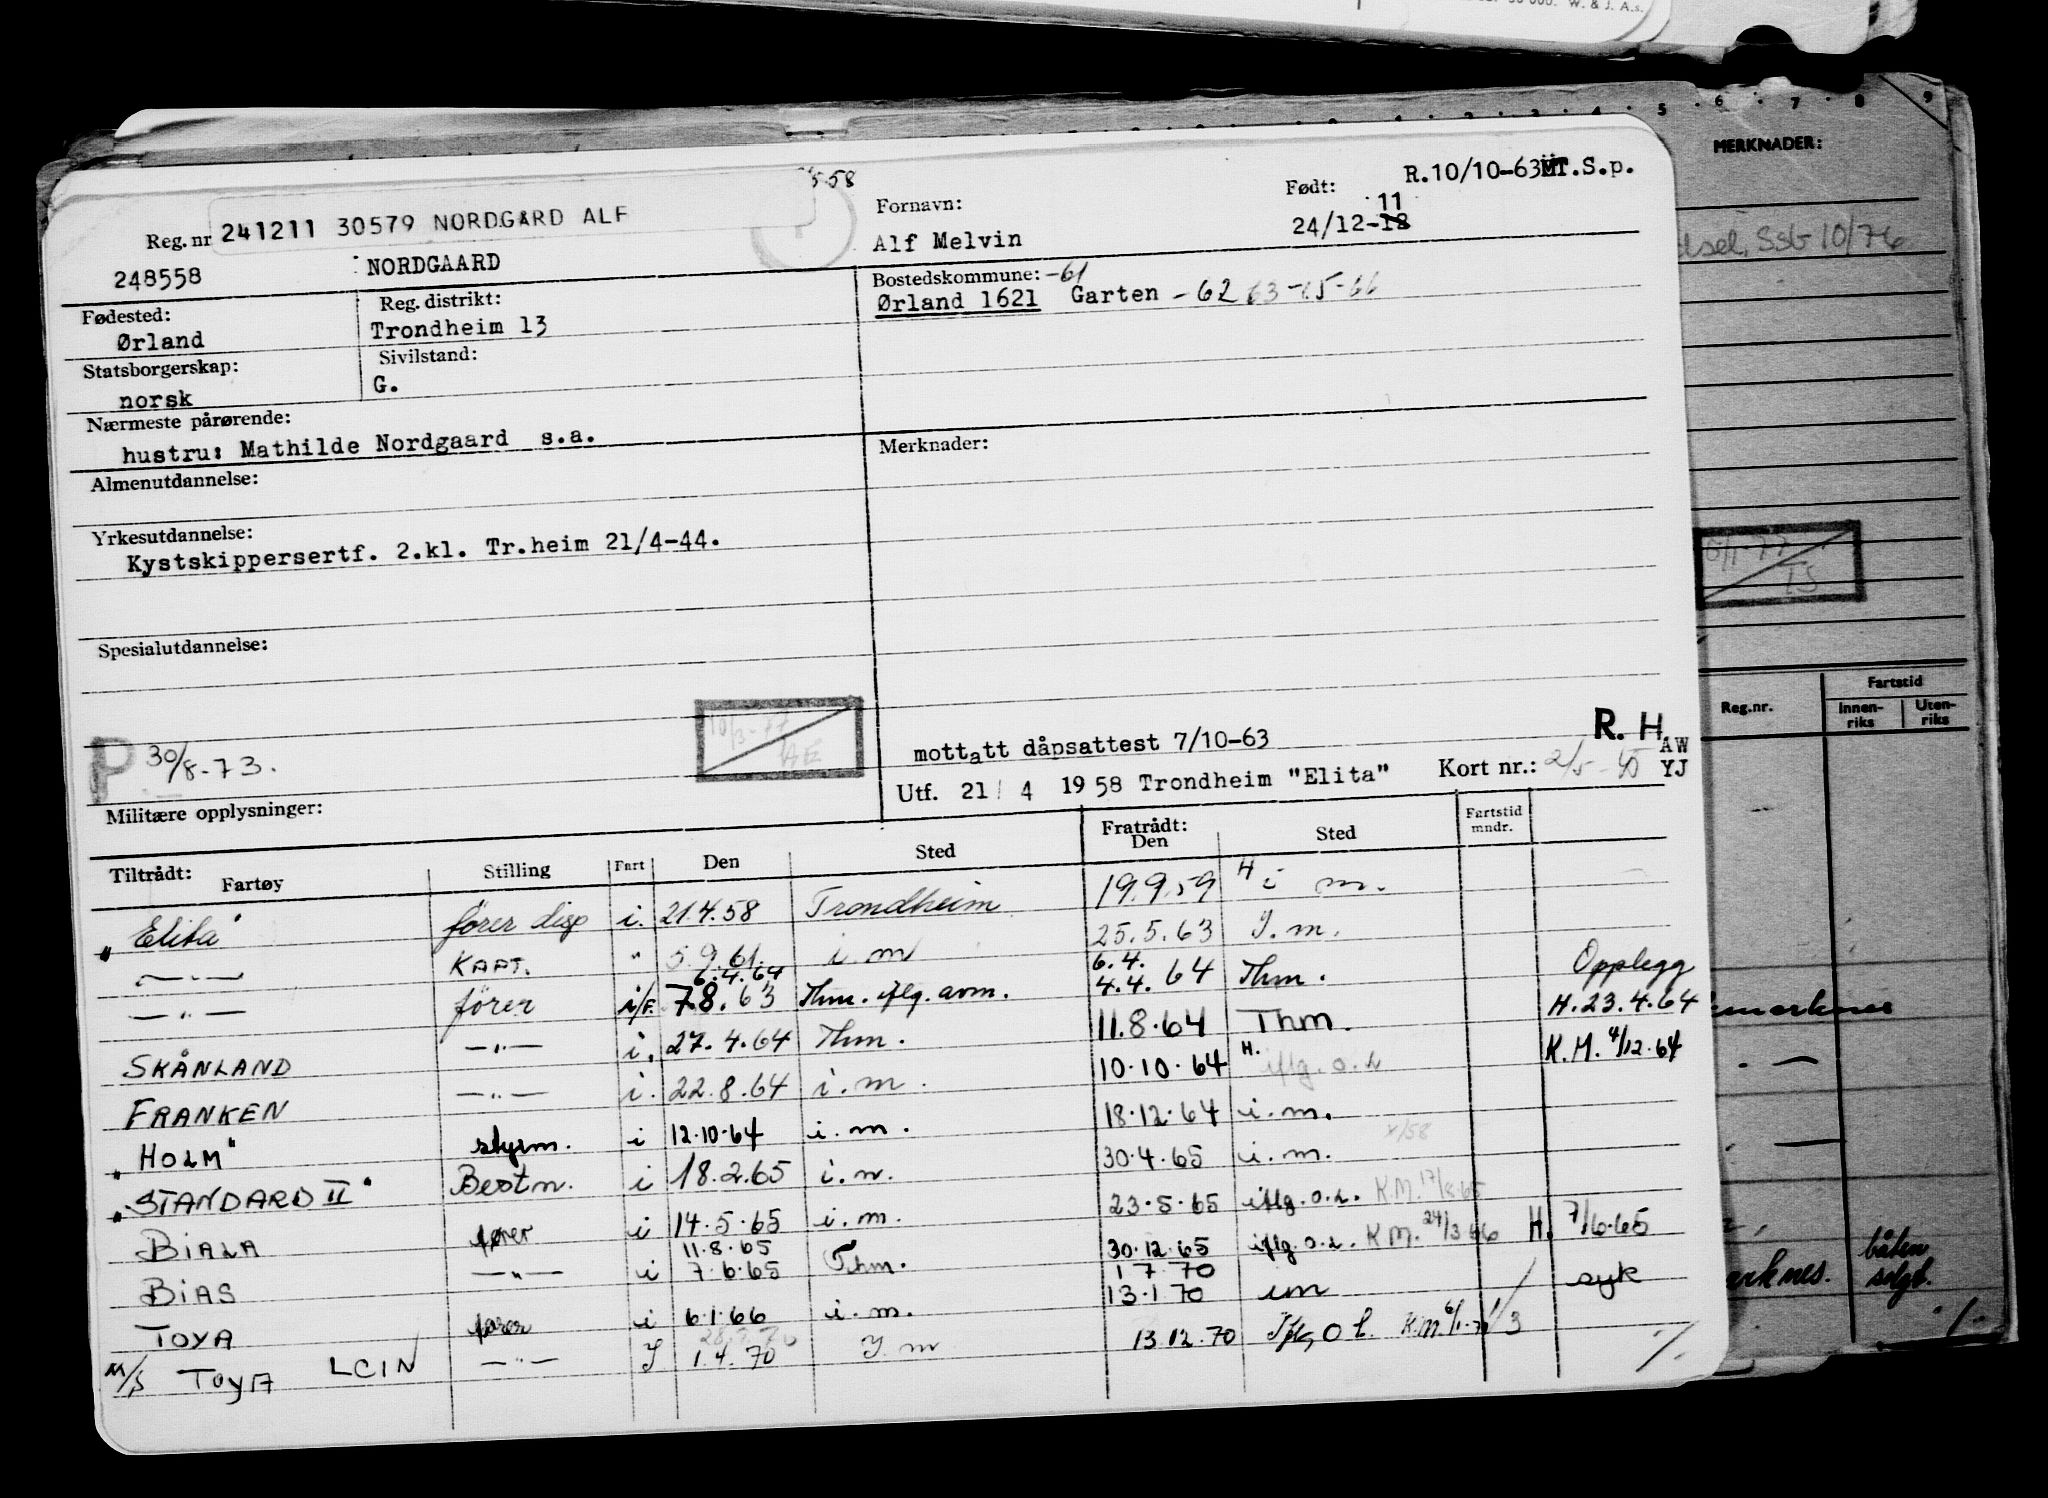 W. & J. A.s.
5 · 6 · 7 · 8 9
MERKNADER:
R.10/10-63 MT.S.p.
5.58
Reg. nr 241211 30579 NORDGARD ALF
Fornavn:
Født:
11
248558 NORDGAARD
Alf Melvin
24/12-18
Ssb 10/76
Fødested:
Reg. distrikt:
Bostedskommune: -61
Ørland
Trondheim 13
Ørland 1621 Garten -62 63-65-66
Statsborgerskap:
Sivilstand:
norsk
G.
Nærmeste pårørende:
hustru: Mathilde Nordgaard s.a.
Merknader:
Almenutdannelse:
Yrkesutdannelse:
Kystskippersertf. 2.kl. Tr.heim 21/4-44.
TS
Spesialutdannelse:
Fartstid
Reg.nr.
Innenriks
Utenriks
P 30/8-73.
10/3-77
AE
mottatt dåpsattest 7/10-63
R. H
AW
YJ
Militære opplysninger:
Utf. 21/ 4 1958 Trondheim "Elita"
Kort nr.: 2/5-
Tiltrådt:
Fartøy
Stilling
Fart
Den
Sted
Fratrådt:
Den
Sted
Fartstid
mndr.
"Elita" fører disp i. 21.4.58 Trondheim 19.9.59 H i m.
—"— KAPT. " 5.9.61. i.m 25.5.63 I.m.
—"— fører i/F. 7.8.63 6.4.64 Thm. iflg. avm. 4.4.64 6.4. Thm. Opplegg
SKÅNLAND —"— i. 27.4.64 Thm. 11.8.64 Thm. H.23.4.64
FRANKEN —"— i. 22.8.64 i.m. 10.10.64 H. iflg.o.l K.M. 4/12.64
"HOLM" styrm. i 12.10.64 i.m. 18.12.64 i.m.
"STANDARD II" Bestm. i 18.2.65 i.m. 30.4.65 i.m.
BIALA fører i 14.5.65 i.m. 23.5.65 iflg.o.l. K.M. 17/8.65
BIAS —"— i 7.6.65 11.8.65 Thm. 30.12.65 iflg.o.l. K.M. 24/3 66 H. 7/6.65
TOYA fører i 6.1.66 i.m. 13.1.70 1 7.70 im syk
M/S TOYA LCIN —"— I 1.4.70 I.m 13.12.70 Iflg O l. K.M. 1/3
båten
solgt.